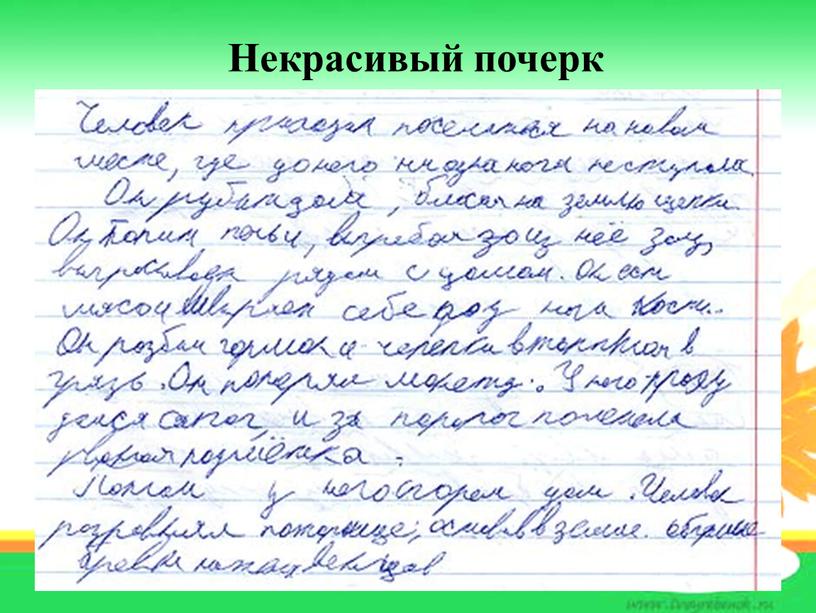 Некрасивый почерк
Человек приходил поселиться на новом
месте, где до него ни одна нога не ступала.
Он рубил дома, бросая на землю щепки.
Он топил печь, выгребая из неё золу,
выбрасывал рядом с домом. Он ест
мясо и швырял себе под ноги кости.
Он разбил горшок а черепки втоптал в
грязь. Он потерял монету. У него
сапог, и за порог полетела
рваная подмётка.
Потом у него сгорел дом. Человек
разровнял пожарище, оставив в земле
www.tvoyrebenok.ru